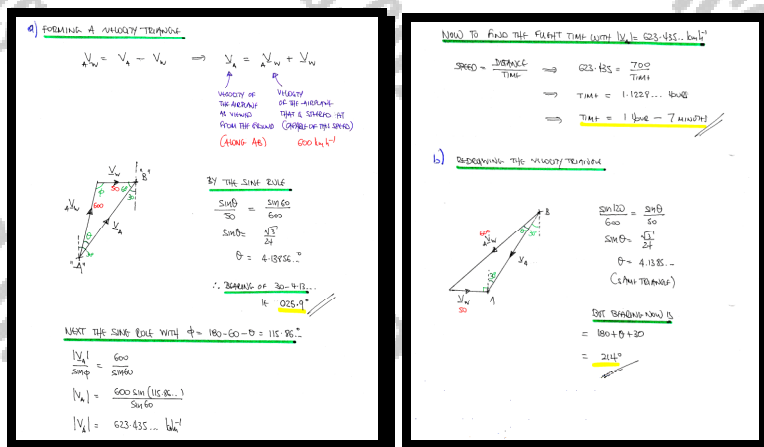 a) FORMING A VELOCITY TRIANGLE
AVW = VA - VW ⇒ VA = AVW + VW
VELOCITY OF
THE AIRPLANE
AS VIEWED
FROM THE GROUND
(ALONG AB)
VELOCITY
OF THE AIRPLANE
THAT IS STEERED AT
(CAPABLE OF THIS SPEED)
600 km h⁻¹
VW
"B"
φ
50
60
30
600
AVW
VA
θ
30
"A"
BY THE SINE RULE
sinθ/50 = sin60/600
sinθ = √3/24
θ = 4.13856...°
∴ BEARING OF 30-4.13...
IE 025.9°
NEXT THE SINE RULE WITH φ = 180-60-θ = 115.86...°
|VA|/sinφ = 600/sin60
|VA| = 600 sin(115.86...)/sin60
|VA| = 623.435... km h⁻¹
NOW TO FIND THE FLIGHT TIME WITH |VA| = 623.435... km h⁻¹
SPEED = DISTANCE/TIME ⇒ 623.435 = 700/TIME
⇒ TIME = 1.1228... HOURS
⇒ TIME = 1 HOUR - 7 MINUTES
b) REDRAWING THE VELOCITY TRIANGLE
B
600
AVW
θ
30
VA
30
VW
A
50
sin120/600 = sinθ/50
sinθ = √3/24
θ = 4.1385...
(SAME TRIANGLE)
BUT BEARING NOW IS
= 180+θ+30
= 214°